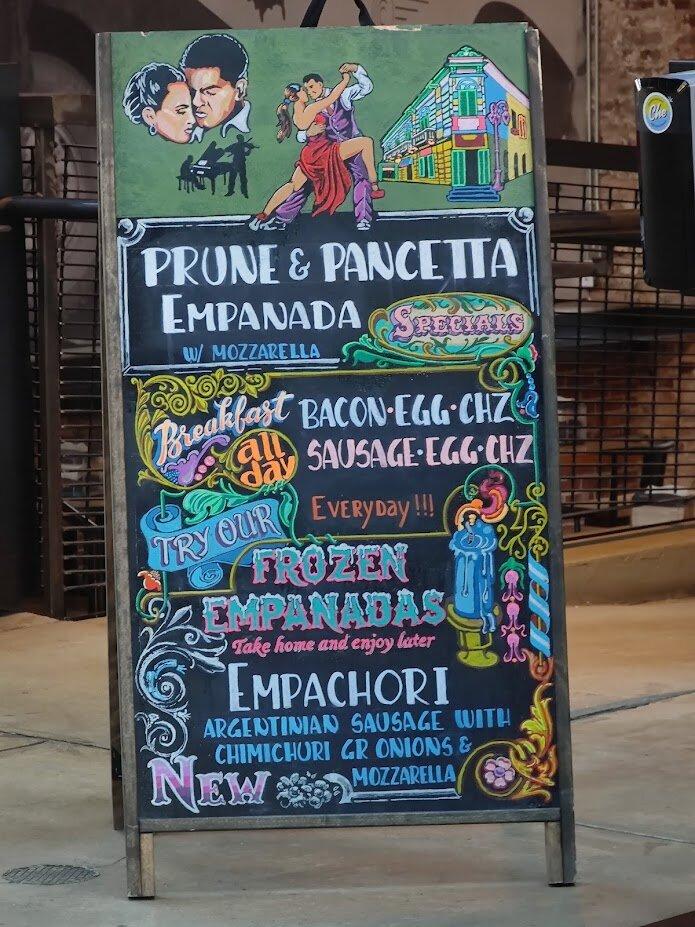 Che
PRUNE & PANCETTA
EMPANADA
SPECIALS
W/ MOZZARELLA
Breakfast
all
day
BACON·EGG·CHZ
SAUSAGE·EGG·CHZ
EVERYDAY!!!
TRY OUR
FROZEN
EMPANADAS
Take home and enjoy later
EMPACHORI
ARGENTINIAN SAUSAGE WITH
CHIMICHURI GR ONIONS &
MOZZARELLA
NEW